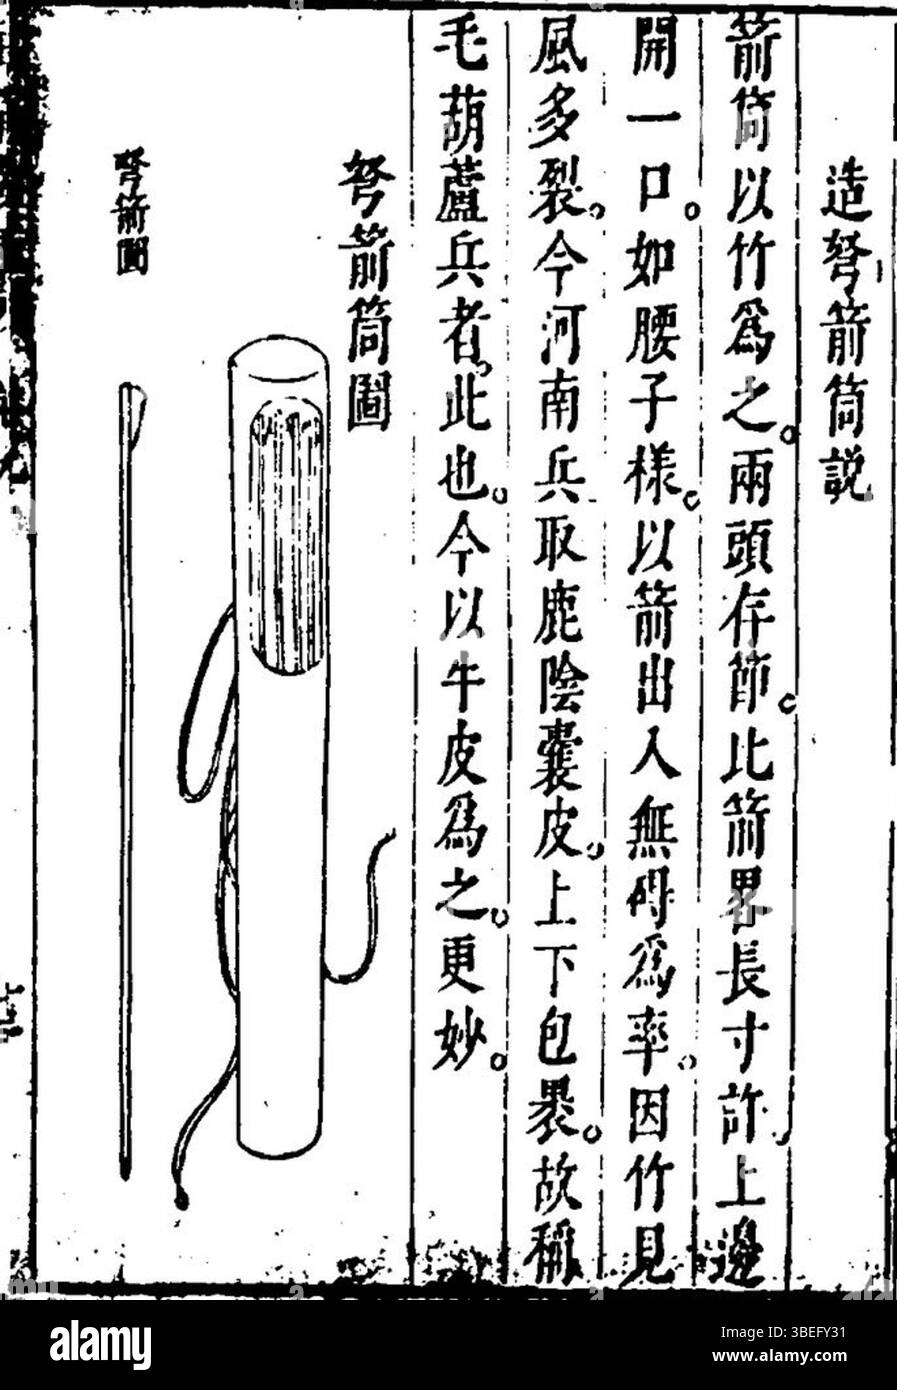 造弩箭筒説
箭筒以竹爲之。兩頭存節。比箭畧長寸許。上邊
開一口。如腰子樣。以箭出入無碍爲率。因竹見
風多裂。今河南兵取鹿陰囊皮。上下包褁。故稱
毛葫蘆兵者。此也。今以牛皮爲之。更妙。
弩箭筒圖
弩箭圖
alamy
Image ID: 3BEFY31
www.alamy.com